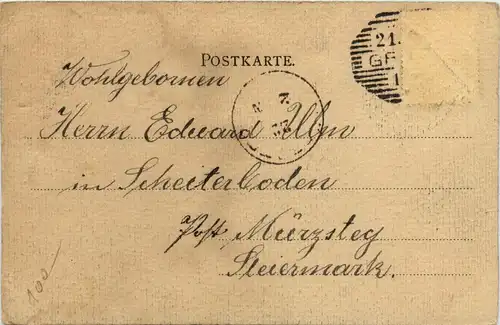 POSTKARTE.
21.
GR
1
Wohlgebornen
Herrn Eduard Ulm
in Scheiterboden
Post Mürzsteg
Steiermark.
100